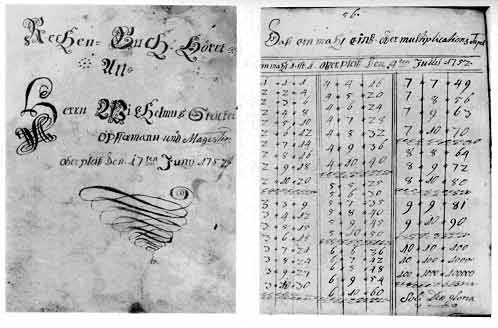 Rechen = Buch Höret
Att=
Herrn Wilhelmus Stöcker
Opffermann und Magister
oberpleis den 17ten Juny 1752
56.
Daß ein mahl eins ober multiplications Tafel
ein mahl 1 ist 1 oberpleis den 4ten Julli 1752
1 1 1
2 2 4
2 3 6
2 4 8
2 5 10
2 6 12
2 7 14
2 8 16
2 9 18
2 10 20
3 3 9
3 4 12
3 5 15
3 6 18
3 7 21
3 8 24
3 9 27
3 10 30
4 4 16
4 5 20
4 6 24
4 7 28
4 8 32
4 9 36
4 10 40
5 5 25
5 6 30
5 7 35
5 8 40
5 9 45
5 10 50
6 6 36
6 7 42
6 8 48
6 9 54
6 10 60
7 7 49
7 8 56
7 9 63
7 10 70
8 8 64
8 9 72
8 10 80
9 9 81
9 10 90
10 10 100
10 100 1000
100 100 10000
Soli Deo gloria